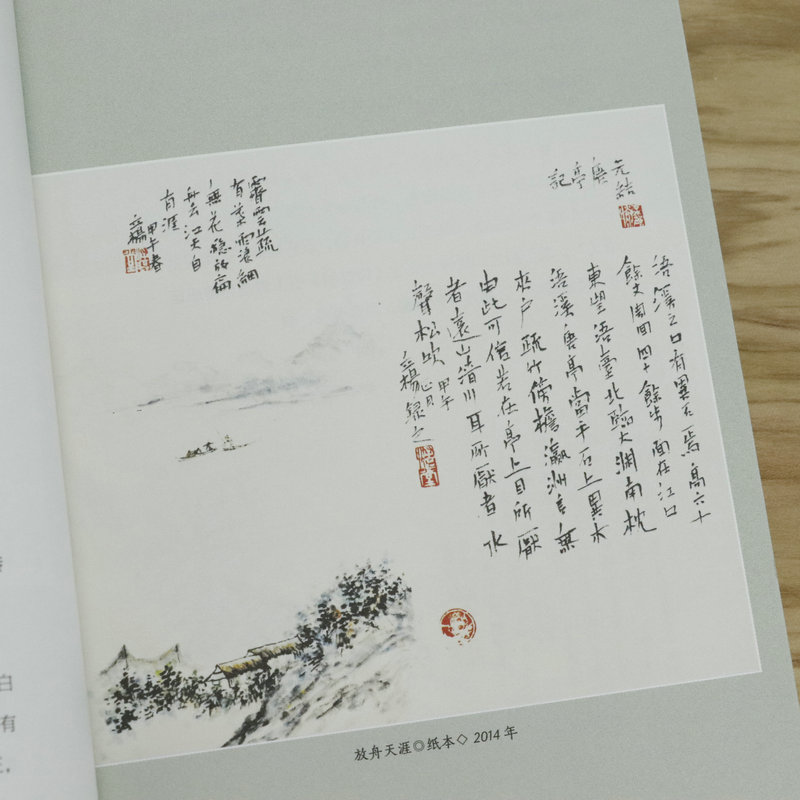 元結
唐亭
記
浯溪之口有異石焉高六十
餘丈周回四十餘步面在江口
東望浯臺北臨大渊南枕
浯溪唐亭當乎石上異木
夾户疏竹傍檐瀛洲言無
由此可信若在亭上目所厭
者遠山清川耳所厭者水
聲松吹
甲午
立楊錄之
霽雲疏
有葉雨浪細
無花穩放扁
舟去江天自
有涯
甲午春
立楊
放舟天涯◎纸本◇ 2014 年
白
有